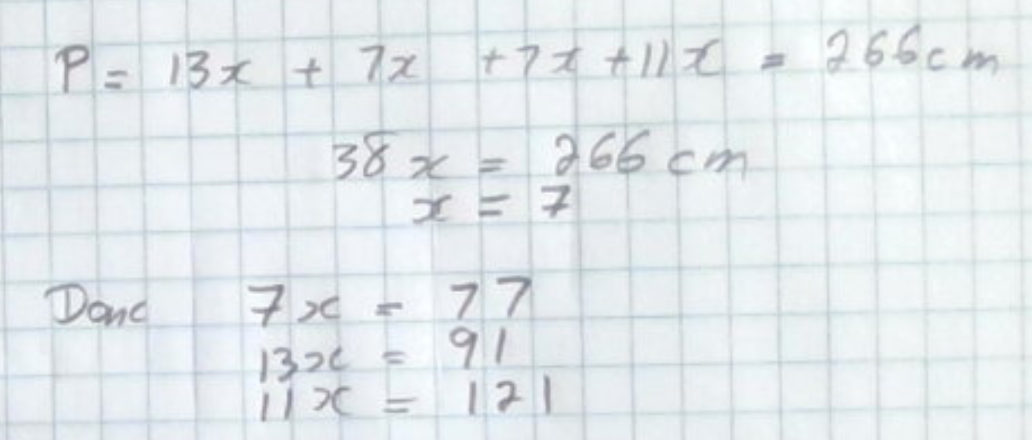 P = 13x + 7x + 7x + 11x = 266 cm
38x = 266 cm
x = 7
Donc 7x = 77
13x = 91
11x = 121